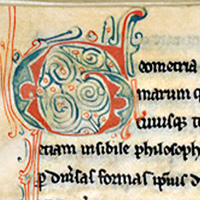 Geometria
marum q
cuiusq; t
etiam insibile philosoph
p diuersas formas ipsius d